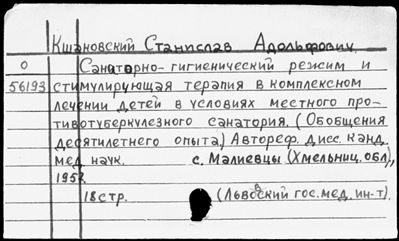 Кшановский Станислав Адольфович.
О Санаторно-гигиенический режим и
56193 стимулирующая терапия в комплексном
лечении детей в условиях местного про-
тивотуберкулезного санатория. (Обобщения
десятилетнего опыта.) Автореф. дисс. канд.
мед. наук. с. Малиевцы (Хмельниц. обл.),
1957.
18 стр. (Львовский гос. мед. ин-т).